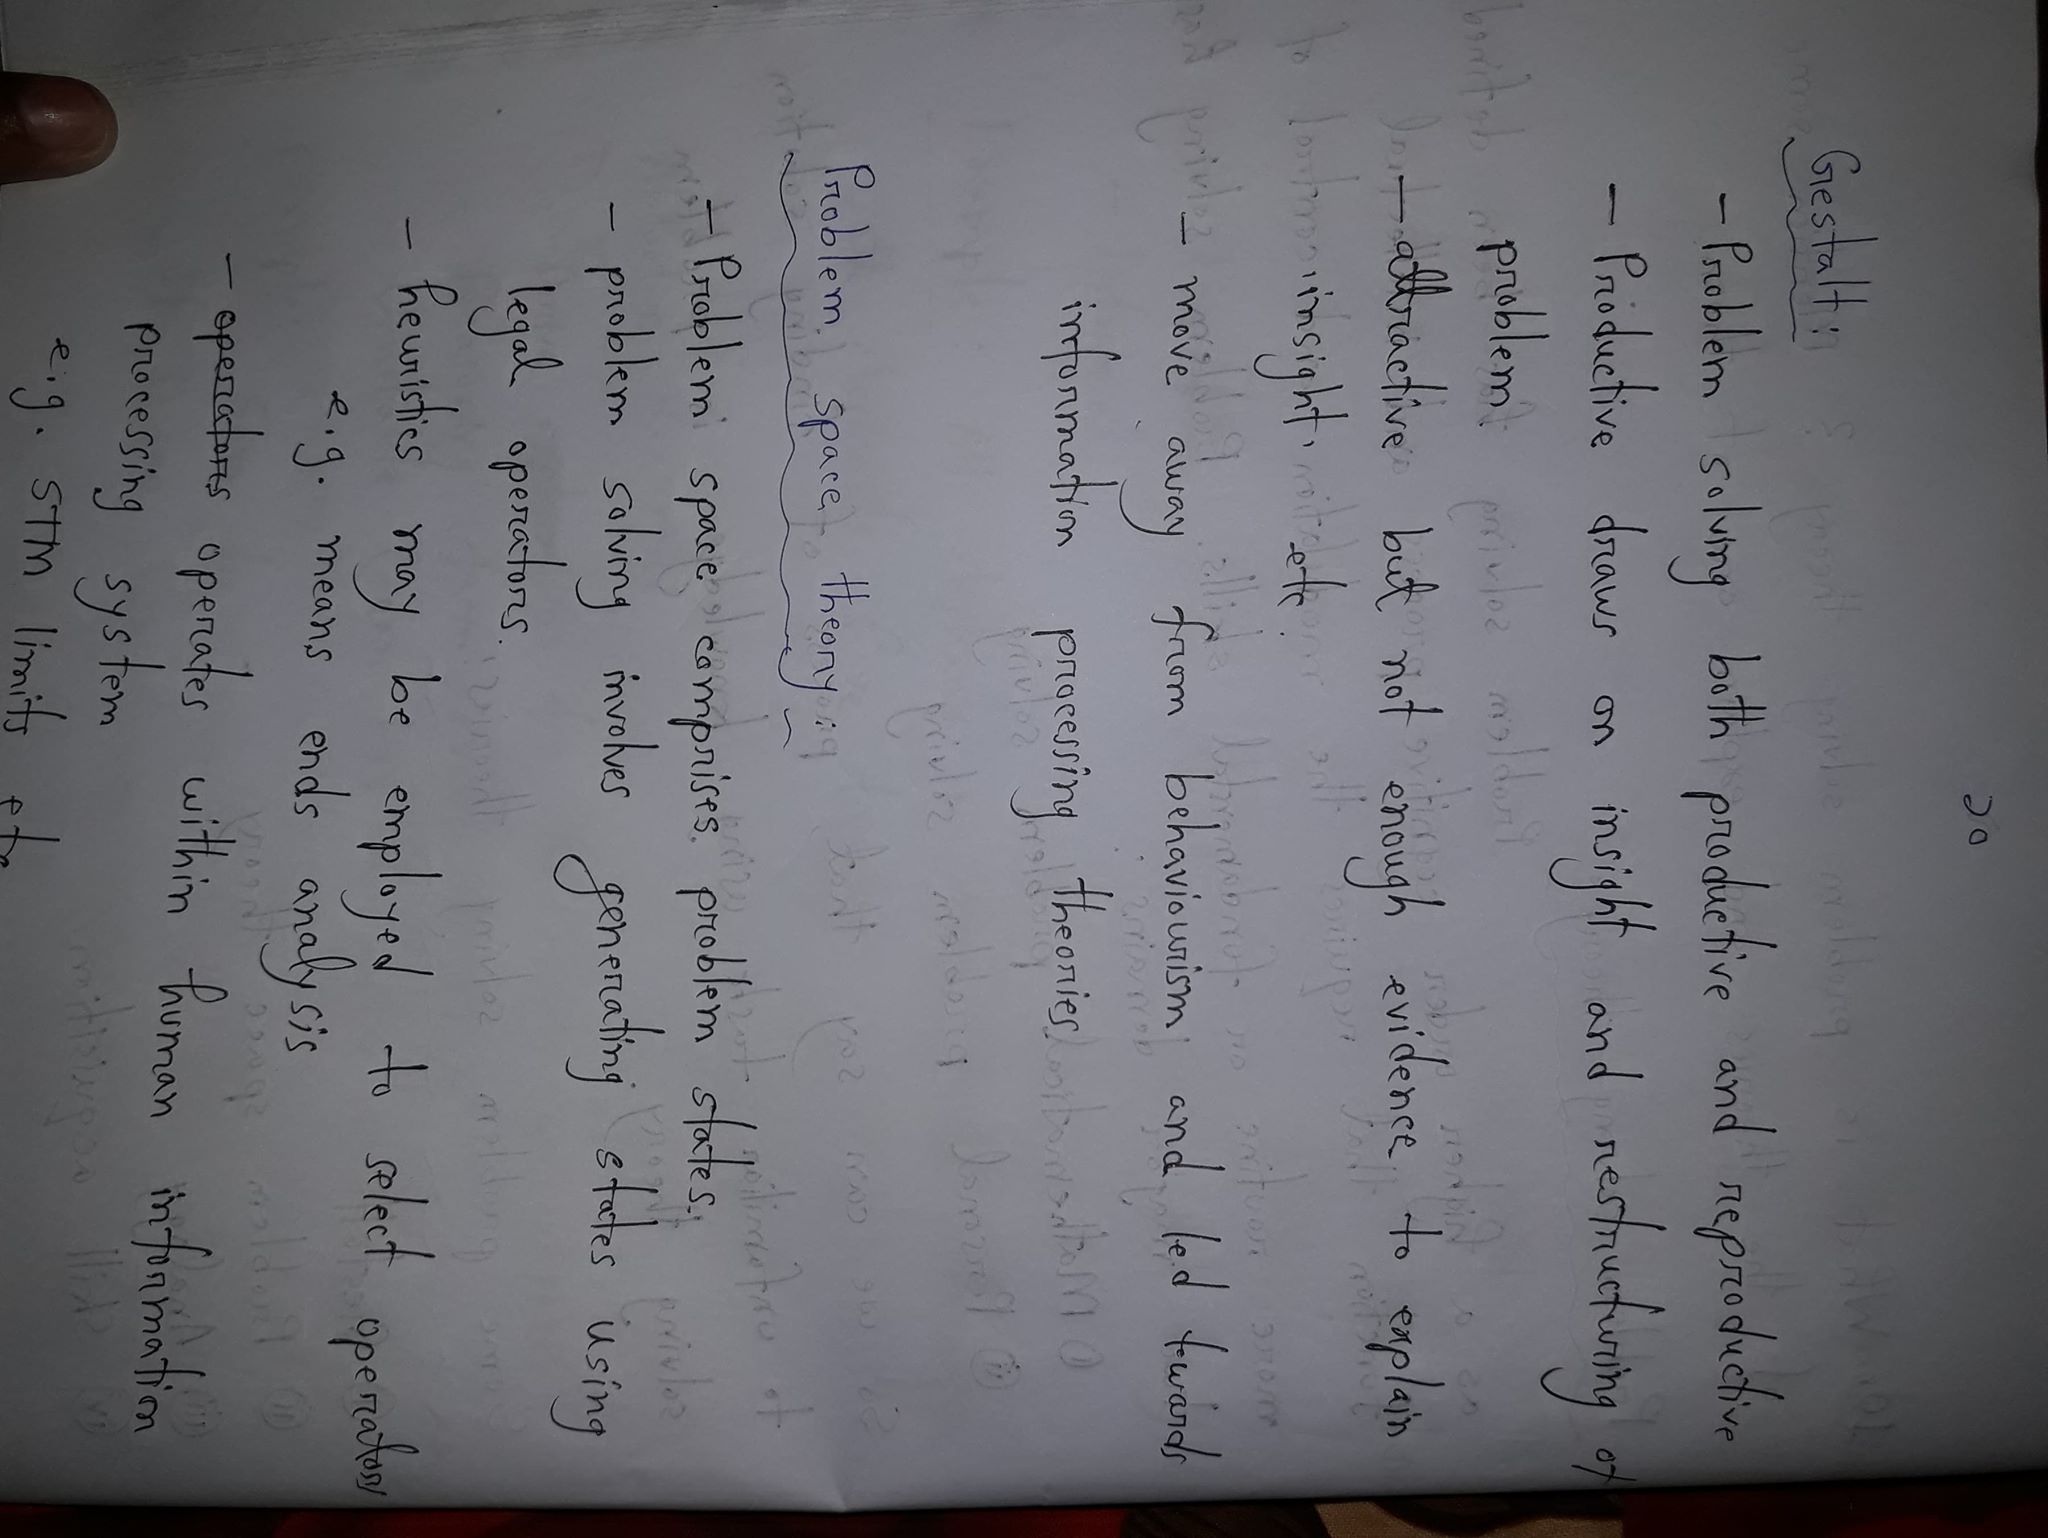 20
Gestalt
- Problem solving both productive and reproductive
- Productive draws on insight and restructuring of
problem
- attractive but not enough evidence to explain
insight, etc.
- move away from behaviourism and led towards
information processing theories.
Problem space theory
- Problem space comprises problem states.
- problem solving involves generating states using
legal operators.
- heuristics may be employed to select operators
e.g. means ends analysis
- operators operates within human information
processing system
e.g. STM limits etc